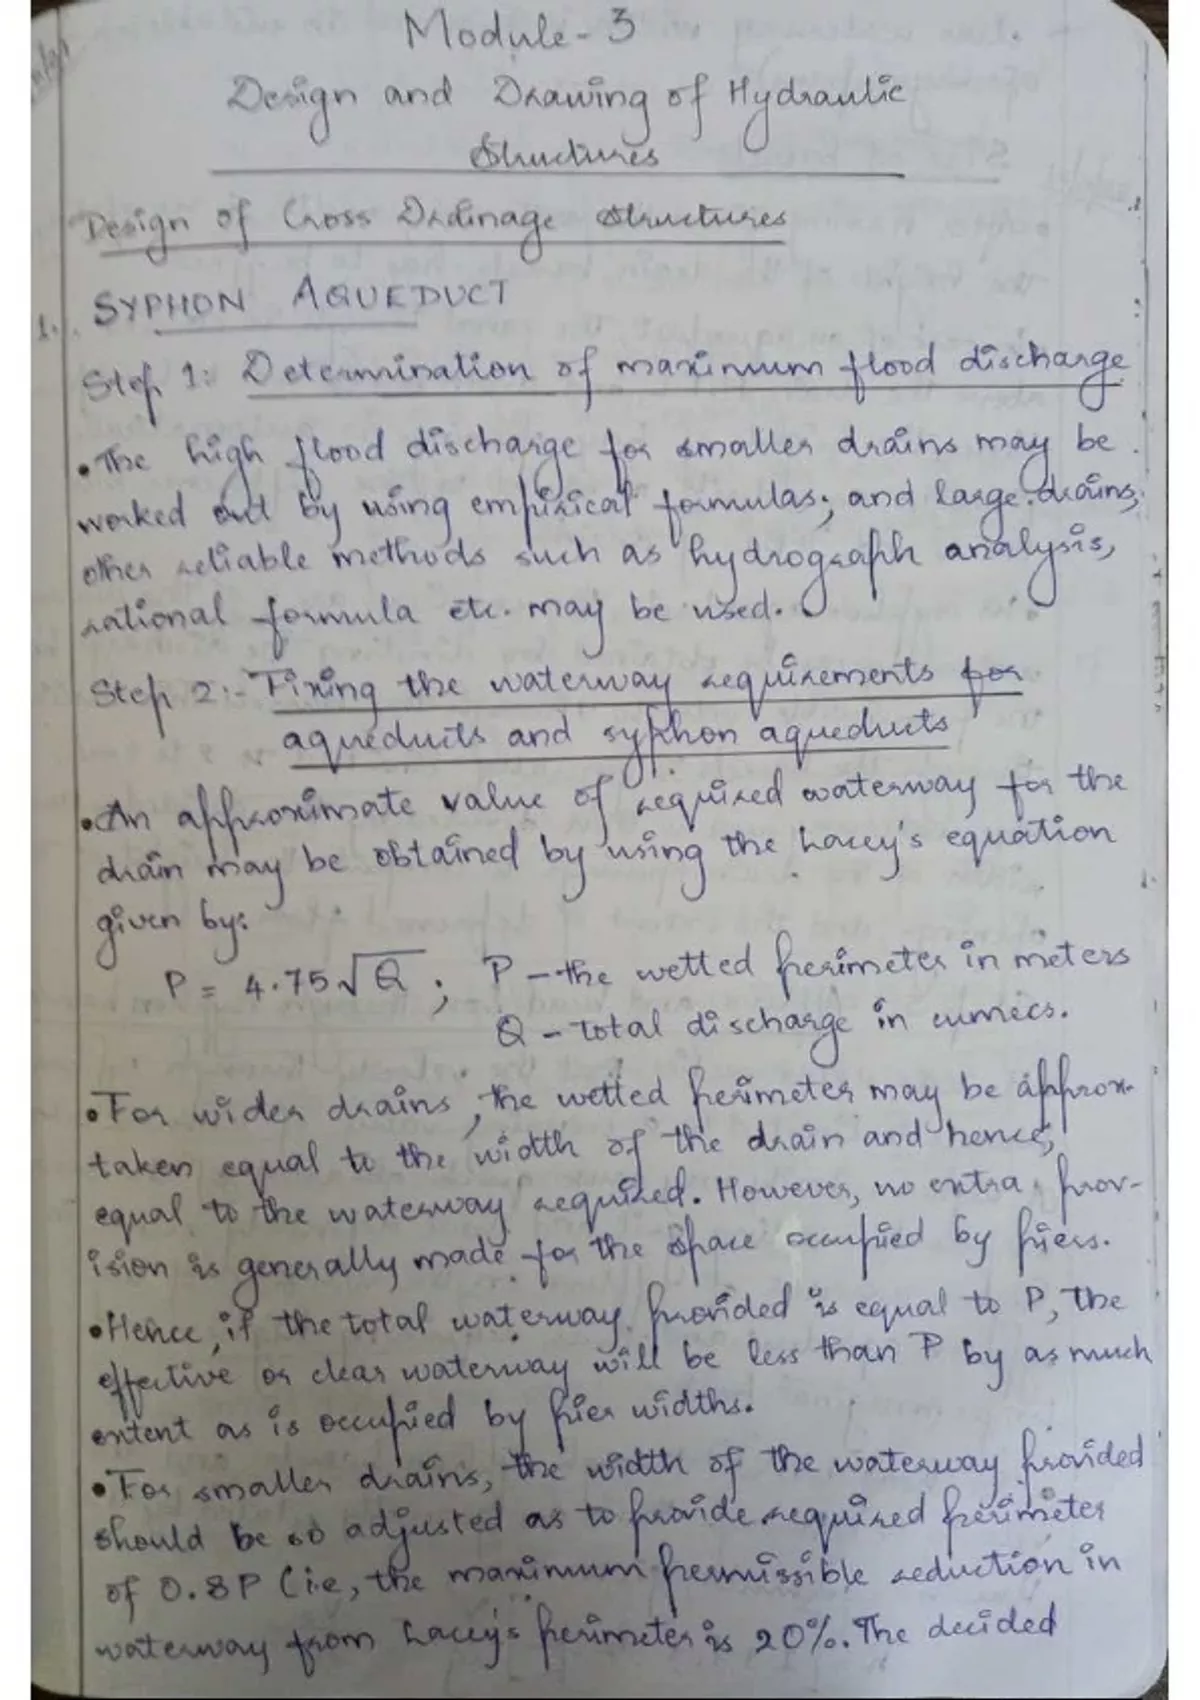 Module-3
Design and Drawing of Hydraulic
Structures
Design of Cross Drainage Structures
1. SYPHON AQUEDUCT
Step 1: Determination of maximum flood discharge
• The high flood discharge for smaller drains may be
worked out by using empirical formulas; and large drains,
other reliable methods such as hydrograph analysis,
rational formula etc. may be used.
Step 2:- Fixing the waterway requirements for
aqueducts and syphon aqueducts
• An approximate value of required waterway for the
drain may be obtained by using the Lacey's equation
given by:
P = 4.75√Q ; P - the wetted perimeter in meters
Q - Total discharge in cumecs.
• For wider drains, the wetted perimeter may be approx.
taken equal to the width of the drain and hence,
equal to the waterway required. However, no extra prov-
ision is generally made for the space occupied by piers.
• Hence, if the total waterway provided is equal to P, the
effective or clear waterway will be less than P by as much
extent as is occupied by pier widths.
• For smaller drains, the width of the waterway provided
should be so adjusted as to provide required perimeter
of 0.8P (i.e, the maximum permissible reduction in
waterway from Lacey's perimeter is 20%. The decided